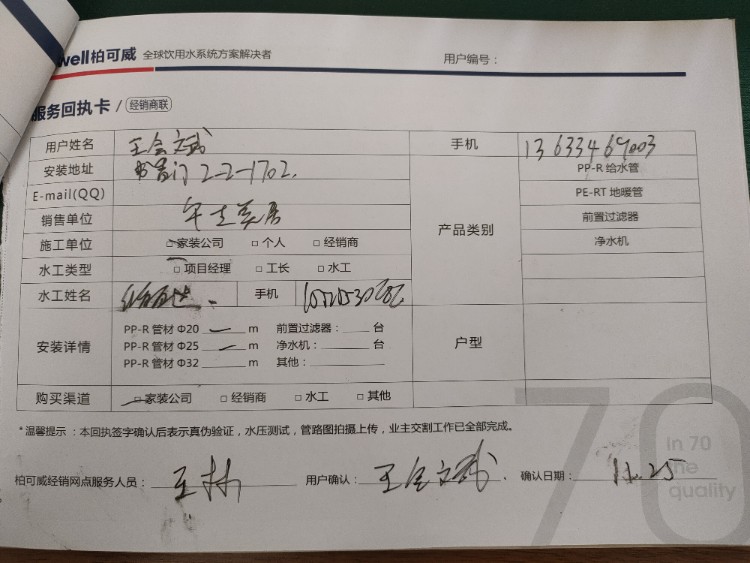 well柏可威 全球饮用水系统方案解决者 用户编号：
服务回执卡 / 经销商联
用户姓名 王会文武 手机 13633469003
安装地址 2-2-1702. PP-R 给水管
E-mail(QQ) PE-RT 地暖管
销售单位 产品类别 前置过滤器
施工单位 □ 家装公司 □ 个人 □ 经销商 净水机
水工类型 □ 项目经理 □ 工长 □ 水工
水工姓名 手机
安装详情 PP-R 管材 Φ20 m 前置过滤器： 台 户型
PP-R 管材 Φ25 m 净水机： 台
PP-R 管材 Φ32 m 其他：
购买渠道 □ 家装公司 □ 经销商 □ 水工 □ 其他
*温馨提示：本回执签字确认后表示真伪验证，水压测试，管路图拍摄上传，业主交割工作已全部完成。
柏可威经销网点服务人员： 王林 用户确认： 王会文武 确认日期： 11.25
70
In 70
the
quality